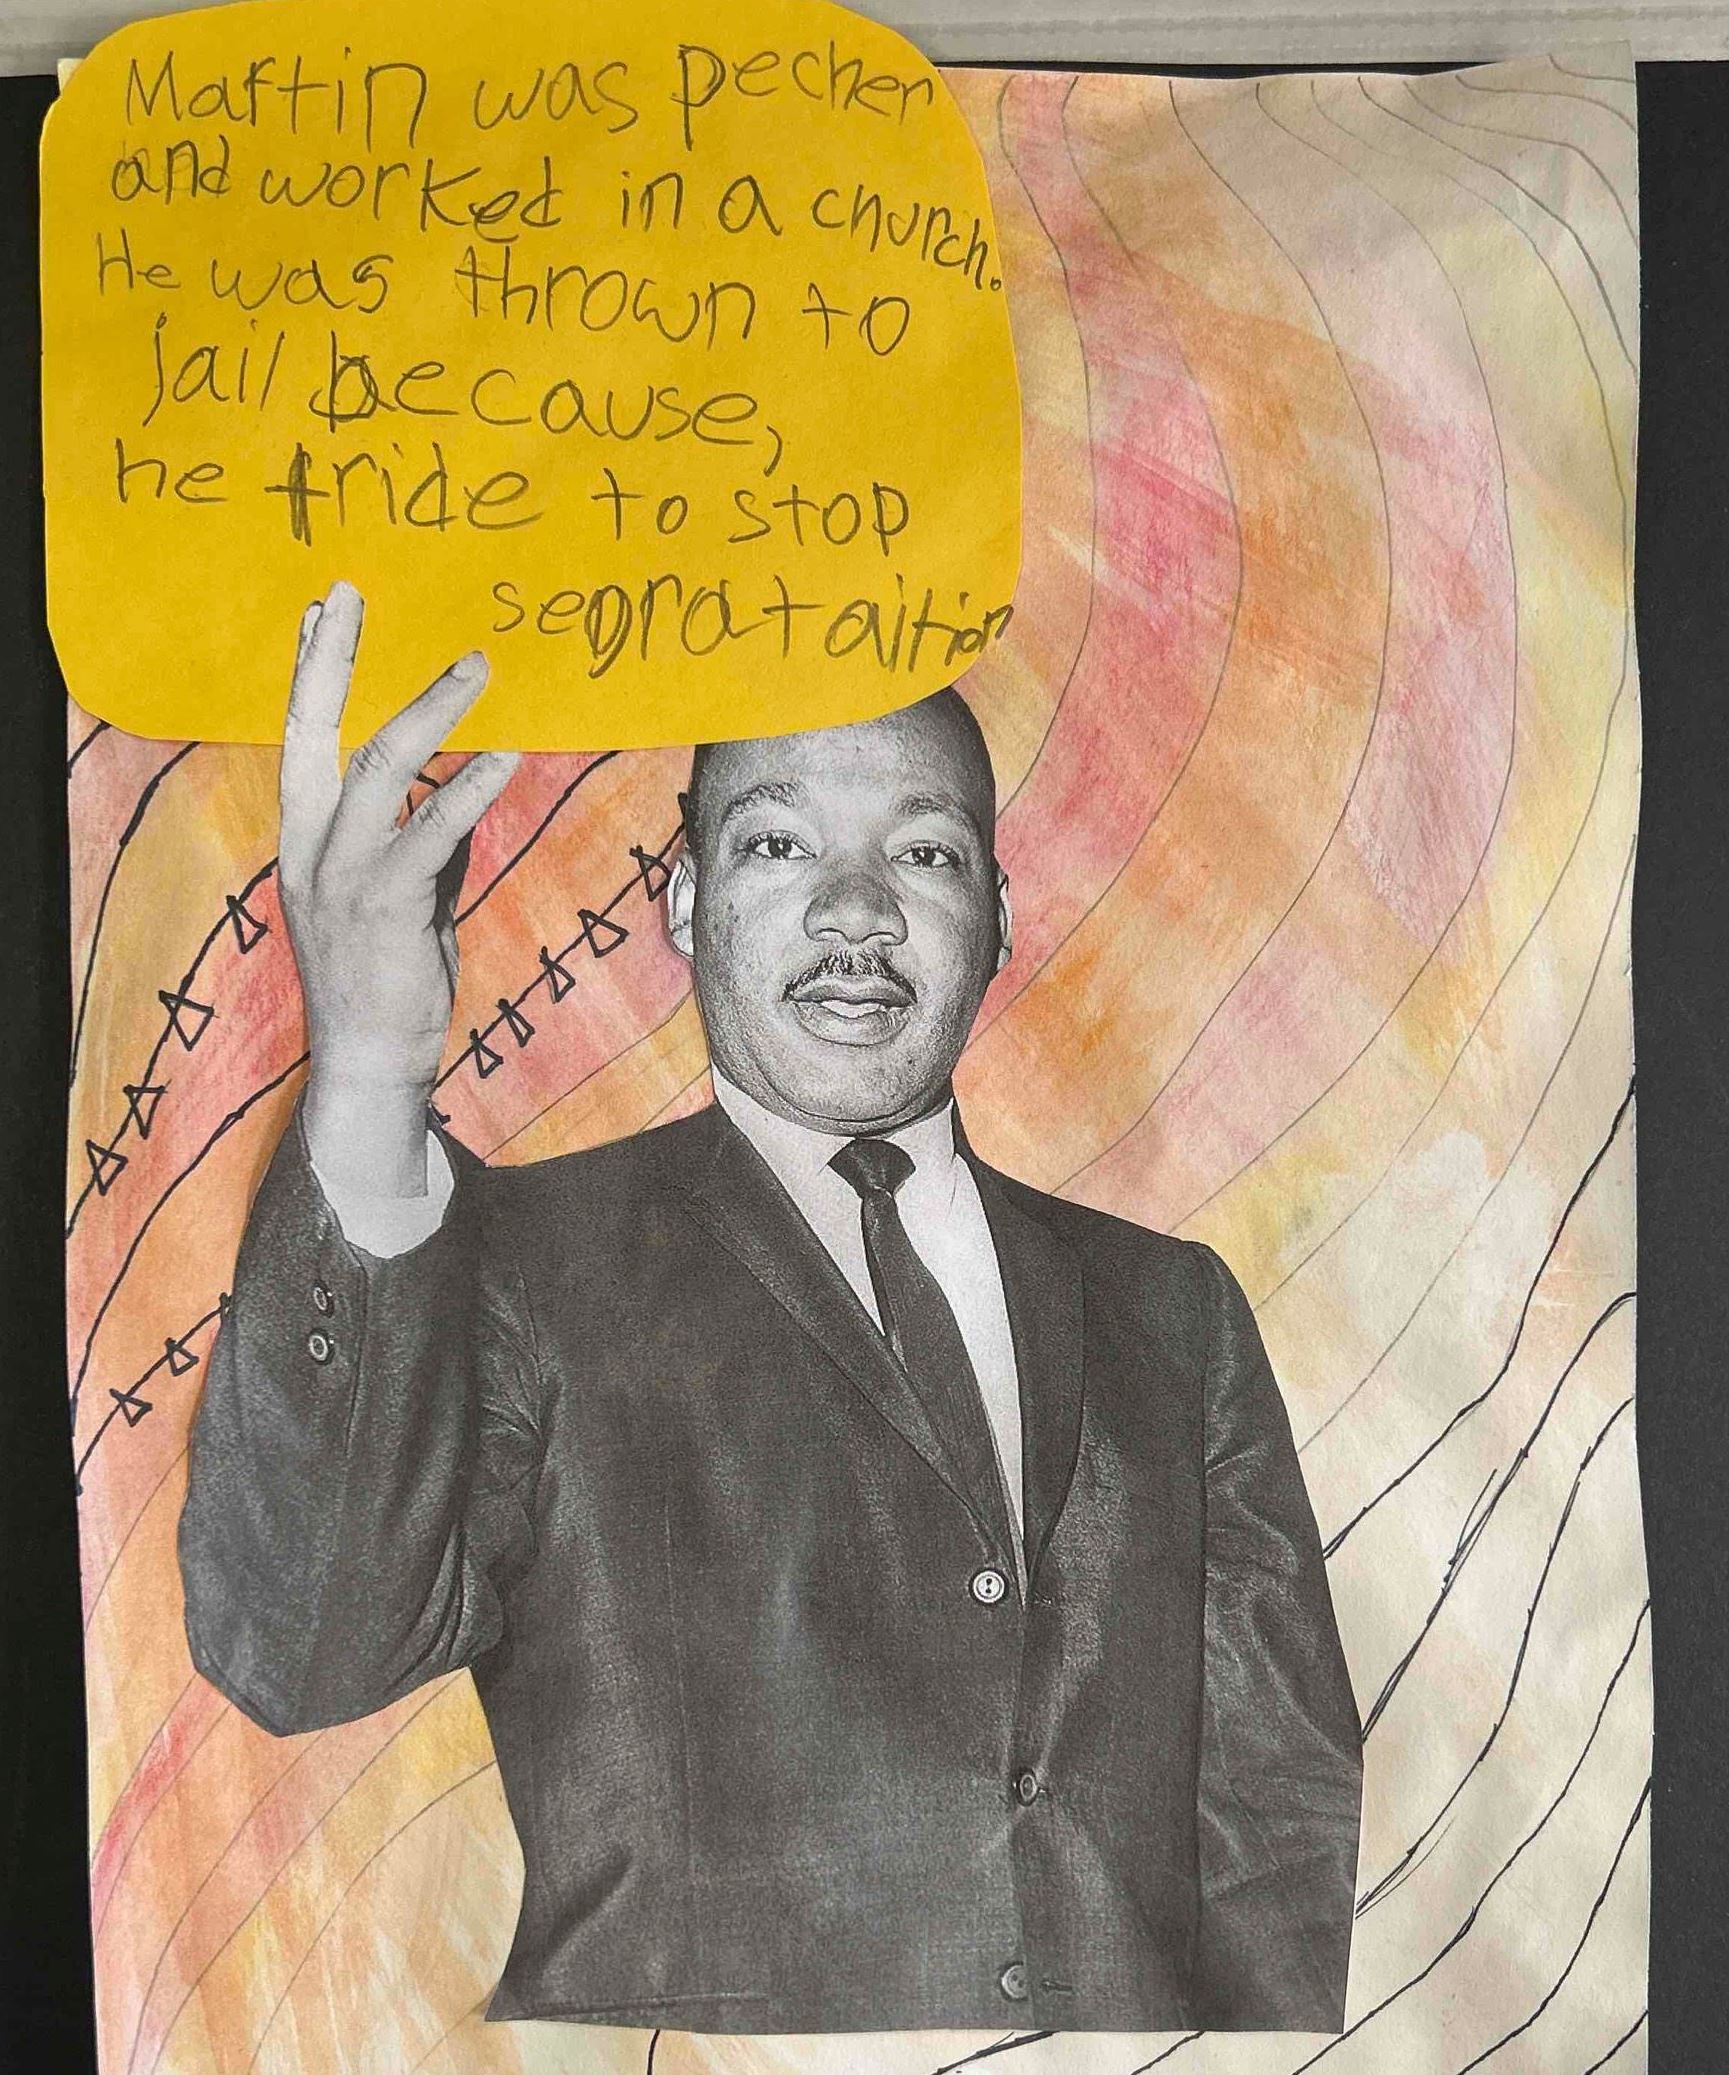 Martin was pecher
and worked in a church.
He was thrown to
jail because,
he tride to stop
segrataition